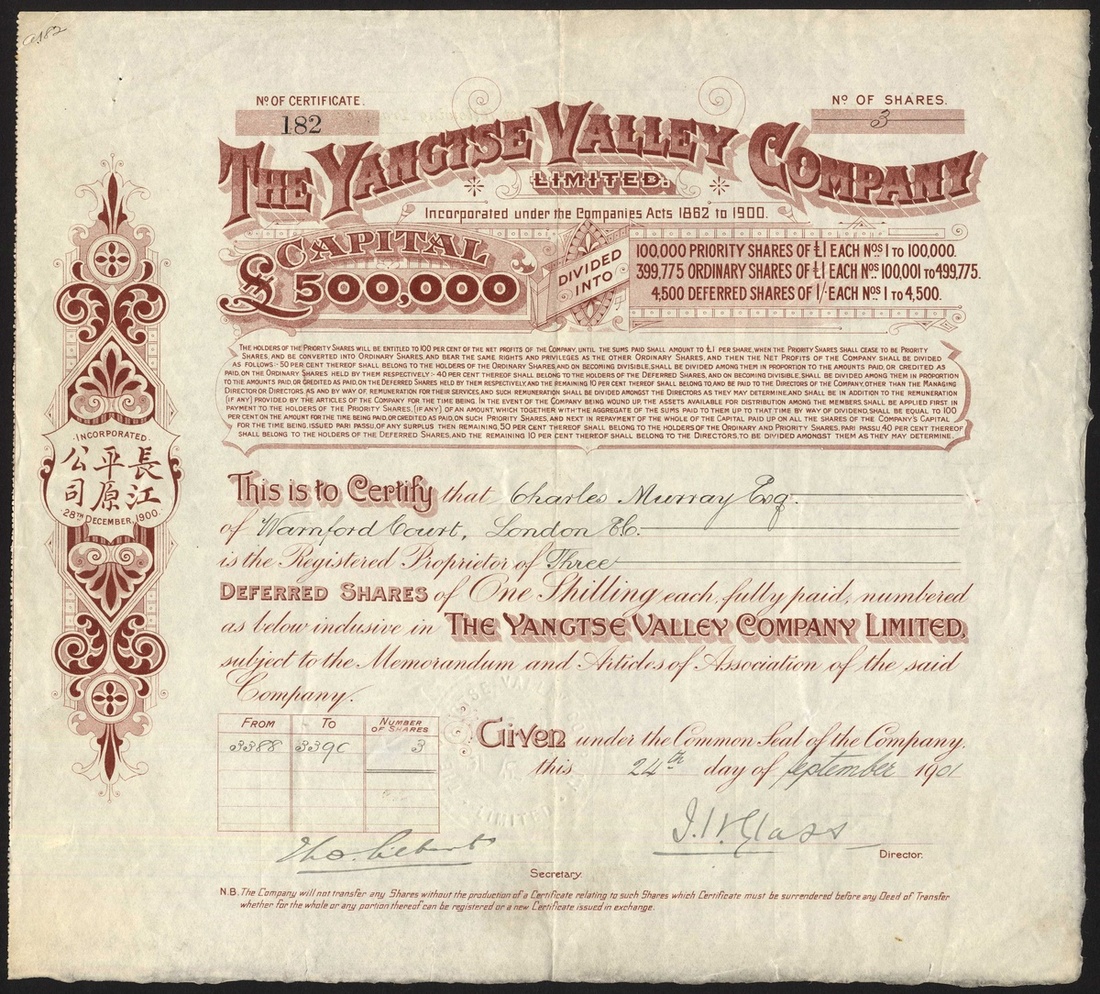 a182
No OF CERTIFICATE.
182
No OF SHARES.
3
THE YANGTSE VALLEY COMPANY
LIMITED.
Incorporated under the Companies Acts 1862 to 1900.
CAPITAL
£500,000
DIVIDED
INTO
100,000 PRIORITY SHARES OF £1 EACH Nos 1 TO 100,000.
399,775 ORDINARY SHARES OF £1 EACH Nos 100,001 TO 499,775.
4,500 DEFERRED SHARES OF 1/- EACH Nos 1 TO 4,500.
THE HOLDERS OF THE PRIORITY SHARES WILL BE ENTITLED TO 100 PER CENT OF THE NET PROFITS OF THE COMPANY, UNTIL THE SUMS PAID SHALL AMOUNT TO £1 PER SHARE, WHEN THE PRIORITY SHARES SHALL CEASE TO BE PRIORITY
SHARES, AND BE CONVERTED INTO ORDINARY SHARES, AND BEAR THE SAME RIGHTS AND PRIVILEGES AS THE OTHER ORDINARY SHARES, AND THEN THE NET PROFITS OF THE COMPANY SHALL BE DIVIDED
AS FOLLOWS:- 50 PER CENT THEREOF SHALL BELONG TO THE HOLDERS OF THE ORDINARY SHARES, AND ON BECOMING DIVISIBLE, SHALL BE DIVIDED AMONG THEM IN PROPORTION TO THE AMOUNTS PAID, OR CREDITED AS
PAID, ON THE ORDINARY SHARES HELD BY THEM RESPECTIVELY:- 40 PER CENT THEREOF SHALL BELONG TO THE HOLDERS OF THE DEFERRED SHARES, AND ON BECOMING DIVISIBLE, SHALL BE DIVIDED AMONG THEM IN PROPORTION
TO THE AMOUNTS PAID, OR CREDITED AS PAID ON THE DEFERRED SHARES HELD BY THEM RESPECTIVELY, AND THE REMAINING 10 PER CENT THEREOF SHALL BELONG TO, AND BE PAID TO THE DIRECTORS OF THE COMPANY, OTHER THAN THE MANAGING
DIRECTOR OR DIRECTORS, AS AND BY WAY OF, REMUNERATION FOR THEIR SERVICES, AND SUCH REMUNERATION SHALL BE DIVIDED AMONGST THE DIRECTORS AS THEY MAY DETERMINE, AND SHALL BE IN ADDITION TO THE REMUNERATION
(IF ANY) PROVIDED BY THE ARTICLES OF THE COMPANY FOR THE TIME BEING. IN THE EVENT OF THE COMPANY BEING WOUND UP, THE ASSETS AVAILABLE FOR DISTRIBUTION AMONG THE MEMBERS, SHALL BE APPLIED FIRST IN
PAYMENT TO THE HOLDERS OF THE PRIORITY SHARES, (IF ANY) OF AN AMOUNT, WHICH TOGETHER WITH THE AGGREGATE OF THE SUMS PAID TO THEM UP TO THAT TIME BY WAY OF DIVIDEND, SHALL BE EQUAL TO 100
PER CENT ON THE AMOUNT FOR THE TIME BEING PAID, OR CREDITED AS PAID, ON SUCH PRIORITY SHARES, AND NEXT IN REPAYMENT OF THE WHOLE OF THE CAPITAL PAID UP ON ALL THE SHARES OF THE COMPANY'S CAPITAL
FOR THE TIME BEING, ISSUED PARI PASSU, OF ANY SURPLUS THEN REMAINING, 50 PER CENT THEREOF SHALL BELONG TO THE HOLDERS OF THE ORDINARY AND PRIORITY SHARES, PARI PASSU, 40 PER CENT THEREOF
SHALL BELONG TO THE HOLDERS OF THE DEFERRED, AND THE REMAINING 10 PER CENT THEREOF SHALL BELONG TO THE DIRECTORS, TO BE DIVIDED AMONGST THEM AS THEY MAY DETERMINE.
INCORPORATED
長江
平原
公司
28TH DECEMBER, 1900.
This is to Certify that Charles Murray Esq.
of Warnford Court, London E.C.
is the Registered Proprietor of Three
DEFERRED SHARES of One Shilling each, fully paid, numbered
as below inclusive in THE YANGTSE VALLEY COMPANY LIMITED,
subject to the Memorandum and Articles of Association of the said
Company.
FROM TO NUMBER OF SHARES
3388 3390 3
Given under the Common Seal of the Company.
this 24th day of September 1901
J.W. Glass
Director.
Secretary.
N.B. The Company will not transfer any Shares without the production of a Certificate relating to such Shares which Certificate must be surrendered before any Deed of Transfer
whether for the whole or any portion thereof can be registered or a new Certificate issued in exchange.